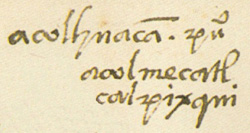 acolhnacã. pũ
acolmecatl
calpixqui